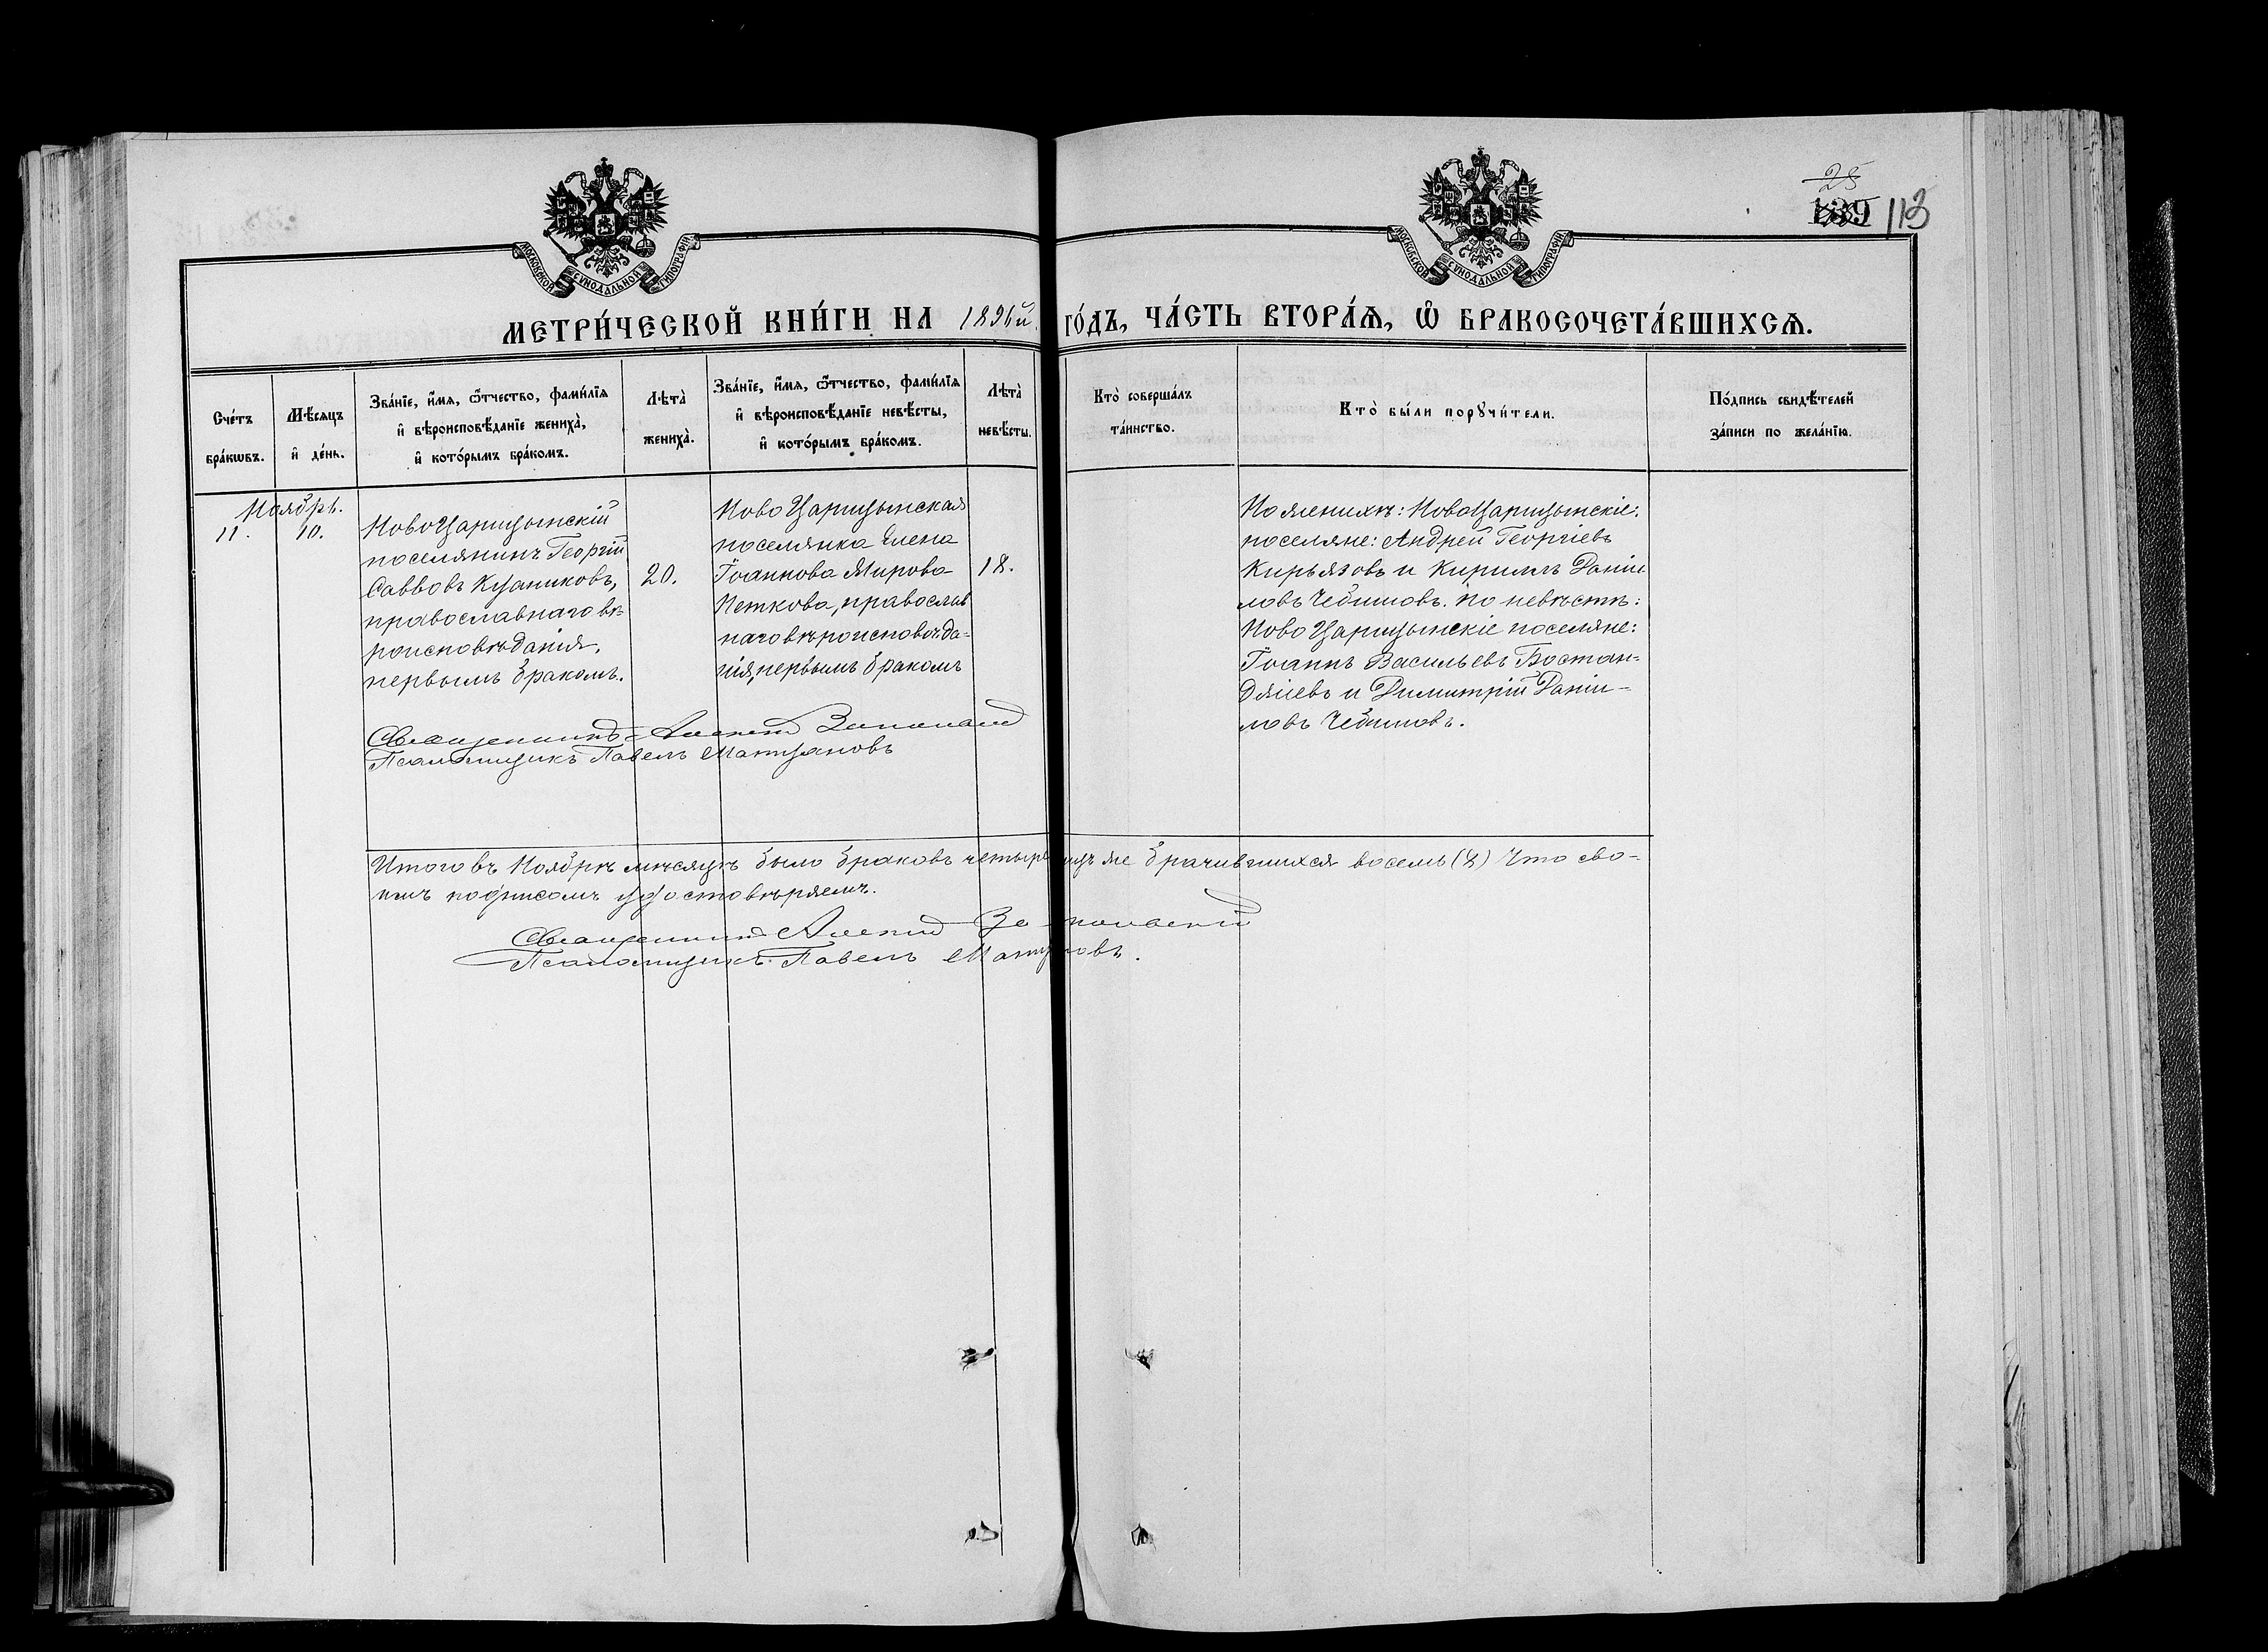 25
139 113
МОСКОВСКОЙ СУНОДАЛЬНОЙ ТИПОГРАФІИ
МОСКОВСКОЙ СУНОДАЛЬНОЙ ТИПОГРАФІИ
МЕТРИ́ЧЕСКОЙ КНИ́ГИ НА 1896й. ГО́ДЪ, ЧА́СТЬ ВТОРА́Ѧ, Ѽ БРАКОСОЧЕТА́ВШИХСѦ.
Сче́тъ бра́кѡвъ.
Мѣ́сяцъ и҆ де́нь.
Зва́нїе, и҆́мѧ, ѻ҆́тчество, фами́лїѧ
и҆ вѣроисповѣ́данїе жениха̀,
и҆ кото́рымъ бра́комъ.
Лѣта̀
жениха̀.
Зва́нїе, и҆́мѧ, ѻ҆́тчество, фами́лїѧ
и҆ вѣроисповѣ́данїе невѣ́сты,
и҆ кото́рымъ бра́комъ.
Лѣта̀
невѣ́сты.
Кто̀ соверша́лъ
та́инство.
Кто̀ бы́ли порꙋчи́тели.
По́дпись свидѣ́телей
за́писи по жела́нїю.
Ноябрь.
11. 10.
НовоЦарицынскій
поселянинъ Георгій
Саввовъ Куцниковъ,
православнаго вѣ-
роисповѣданія,
первымъ бракомъ.
20.
НовоЦарицынская
поселянка Елена
Іоаннова Мирова-
Неткова, православ
наго вѣроисповѣда-
нія, первымъ бракомъ
18.
По женихѣ: НовоЦарицынскіе:
поселяне: Андрей Георгіевъ
Кирьязовъ и Кириллъ Даніи
ловъ Чебишовъ. По невѣстѣ:
НовоЦарицынскіе поселяне:
Іоаннъ Васильевъ Бостан-
джіевъ и Димитрій Даніи-
ловъ Чебишовъ.
Священникъ
Псаломщикъ Павелъ
Итого въ Ноябрѣ мѣсяцѣ было браковъ четыре же брачившихся восемь (8) Что сво-
имъ подписомъ удостовѣряемъ.
Священникъ
Псаломщикъ Павелъ